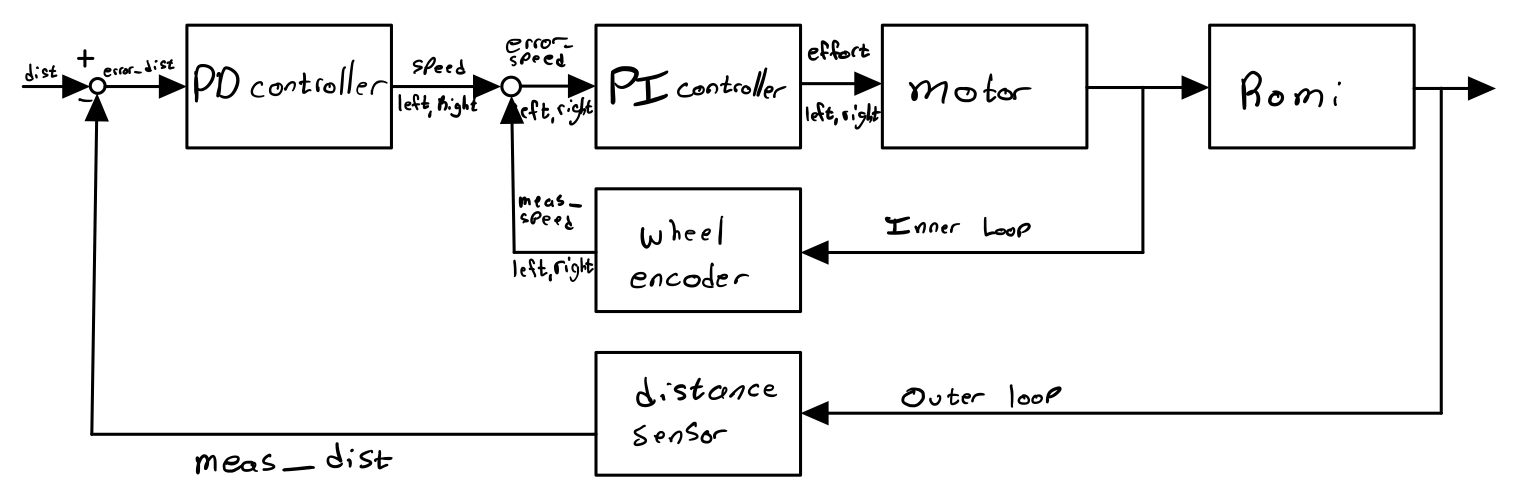 +
dist
error_dist
-
PD controller
speed
left, Right
error_
speed
left, right
PI controller
effort
left, right
Motor
Romi
meas_
speed
left, right
wheel
encoder
Inner Loop
distance
sensor
Outer loop
meas_dist